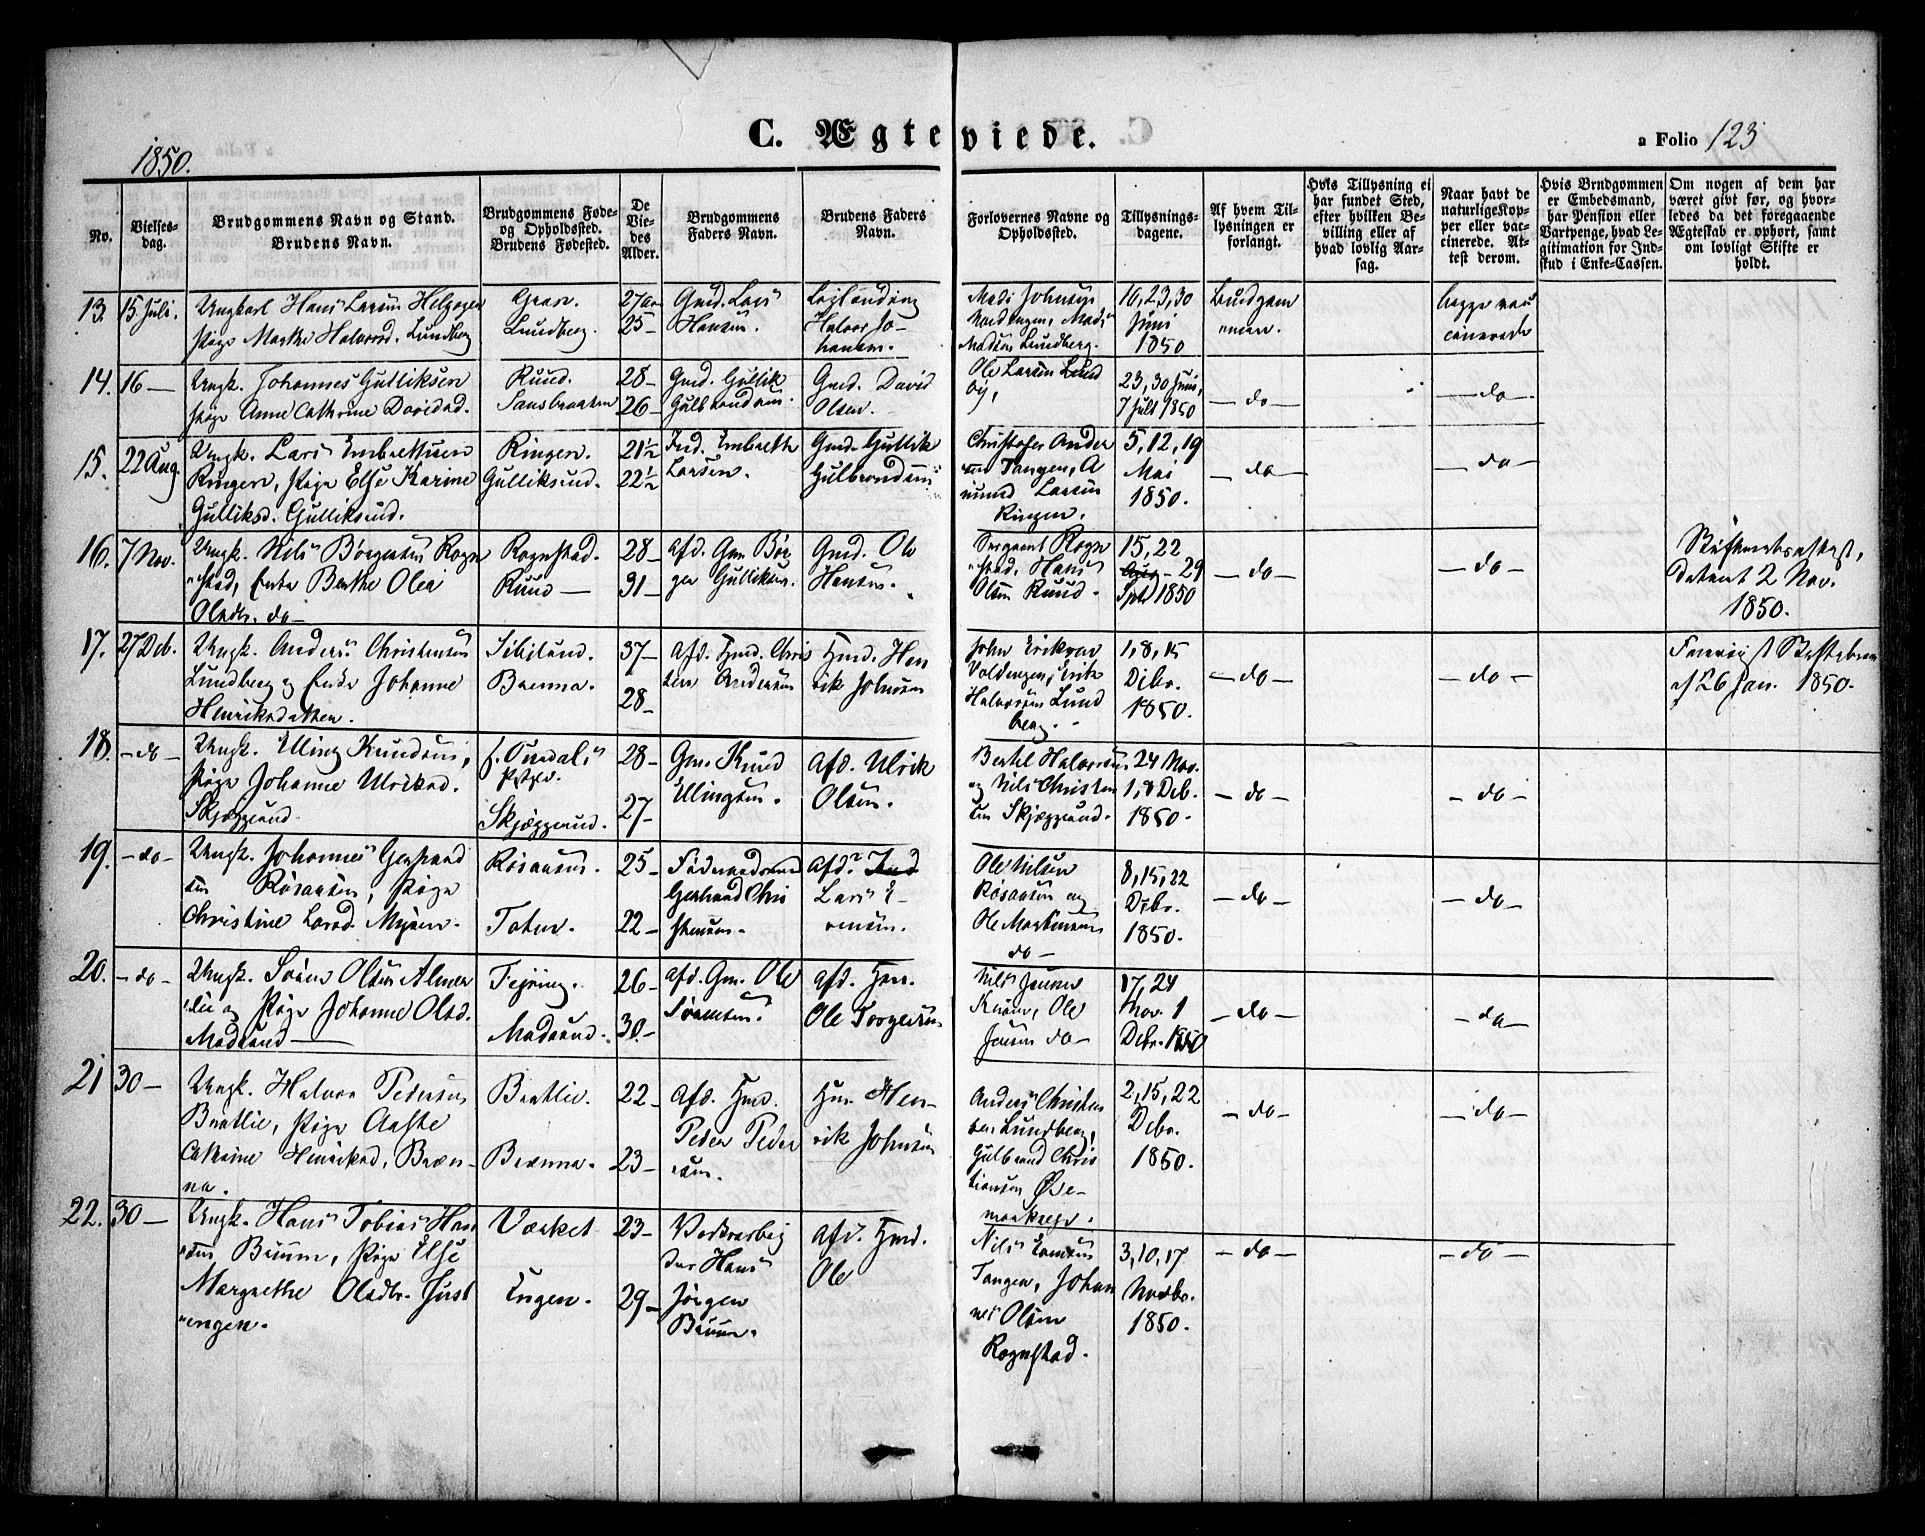 C. Ægteviede.
1850.
a Folio 123
No.
Vielses-
dag.
Brudgommens Navn og Stand.
Brudens Navn.
Brudgommens Føde-
og Opholdssted.
Brudens Fødested.
De
Vie-
des
Alder.
Brudgommens
Faders Navn.
Brudens Faders
Navn.
Forlovernes Navne og
Opholdssted.
Tillysnings-
dagene.
Af hvem Til-
lysningen er
forlangt.
Hvis Tillysning ei
har fundet Sted,
efter hvilken Be-
villing eller af
hvad lovlig Aar-
sag.
Naar havt de
naturlige Kop-
per eller vac-
cinerede. At-
test derom.
Hvis Brudgommen
er Embedsmand,
har Pension eller
Vartpenge, hvad Le-
gitimation for Ind-
skud i Enke-Cassen.
Om nogen af dem har
været givt før, og hvor-
ledes da det foregaaende
Ægteskab er ophørt, samt
om lovligt Skifte er
holdt.
13. 15 Juli.
Ungkarl Hans Larsen
Pige Marthe Halvorsd. Lundberg
Lundberg.
27 aar
25-
Gmd. Lars
Hansen.
Halvor Jo-
hansen.
Mads Johnsen
Madsen Lundberg.
16, 23, 30
Juni
1850
Brudgom
men.
begge vac
cinerede
14. 16 -
Ungk. Johannes Gulliksen
Pige Anne Cathrine Davidsd.
Ruud.
28-
26-
Gmd. Gullik
Gulbrandsen.
Gmd. David
Olsen.
Ole Larsen Lund
by,
23, 30 Juni,
7 Juli 1850
- do -
- do -
15. 22 Aug.
Ungk. Lars Embrettsen
Ringen, Pige Else Karine
Gulliksd. Gulliksrud.
Ringen.
Gulliksrud.
21½
22½
Embreth
Larsen.
Gmd. Gullik
Gulbrandsen
Christofer Ander
sen Tangen, A
mund Larsen
Ringen.
5, 12, 19
Mai
1850.
- do -
- do -
16. 7 Nov.
Ungk. Nils Børgersen Rogn
stad, Enke Berthe Olea
Olsdtr. do -
Rognstad.
Ruud -
28-
31-
Afd. Gm Bør
ger Gulliksen.
Gmd. Ole
Hansen.
Sergeant Rogn
stad, Hans
Olsen Ruud.
15, 22
- 29
Sptb 1850
- do -
- do -
Skifteretsattest,
dateret 2 Nov.
1850.
17. 27 Deb.
Ungk. Anders Christensen
Lundberg og Enke Johanne
Henriksdatter.
Brenna.
37-
28-
Afd. Hmd. Chris
ten Andersen
Hmd. Hen
rik Johnsen
John Eriksen
Voldengen, Erik
Halvorsen Lund
berg.
1, 8, 15
Debr.
1850.
- do -
- do -
af 26 Jan. 1850.
18. - do -
Ungk. Elling Knudsen,
Pige Johanne Ulriksd.
Skjæggerud
Skjæggerud.
28-
27-
Gm. Knud
Ellingsen.
Afd. Ulrik
Olsen.
Bertel Halvorsen
og Nils Christen
sen Skjæggerud.
24 Nov.
1, 8 Deb.
1850.
- do -
- do -
19. - do -
Ungk. Johannes Gerhard
sen Røsaasen, Pige
Christine Larsd. Myren.
Røsaasen.
Toten.
25-
22-
Gerhard Chri
stensen.
Afd.
Lars E-
Ole Nilsen
Røsaasen og
Ole Mortensen
do -
8, 15, 22
Debr.
1850.
- do -
- do -
20. - do -
Ungk. Søren Olsen Almer
lie og Pige Johanne Olsd.
Madsrud -
Fejring.
Madsrud.
26-
30-
Afd. Gm. Ole
Sørensen.
Afd. Hm.
Ole Torgersen
Nils Jensen
Ole
Jensen do -
17, 24
Nov. 1
Debr. 1850
- do -
- do -
21 30 -
Ungk. Halvor Pedersen
Bratlie, Pige Aaste
Cathrine Henriksd. Bræn-
na.
Bratlie.
Brænna.
22-
23-
Afd. Hmd.
Peder Peder
sen.
Hm. Hen-
rik Johnsen
Anders Christen
sen Lundberg,
Gulbrand Chris
tiansen Øde-
2, 15, 22
Debr.
1850.
- do -
- do -
22. 30 -
Ungk. Hans Tobias Han
sen Bruun, Pige Else
Margrethe Olsdtr. Just
engen.
Værket
Engen.
23-
29-
Verksarbej
der Hans
Jørgen
Bruun.
Afd. Hmd.
Ole
Nils Larsen
Tangen, Johan
nes Olsen
Rognstad.
3, 10, 17
Novbr.
1850.
- do -
- do -